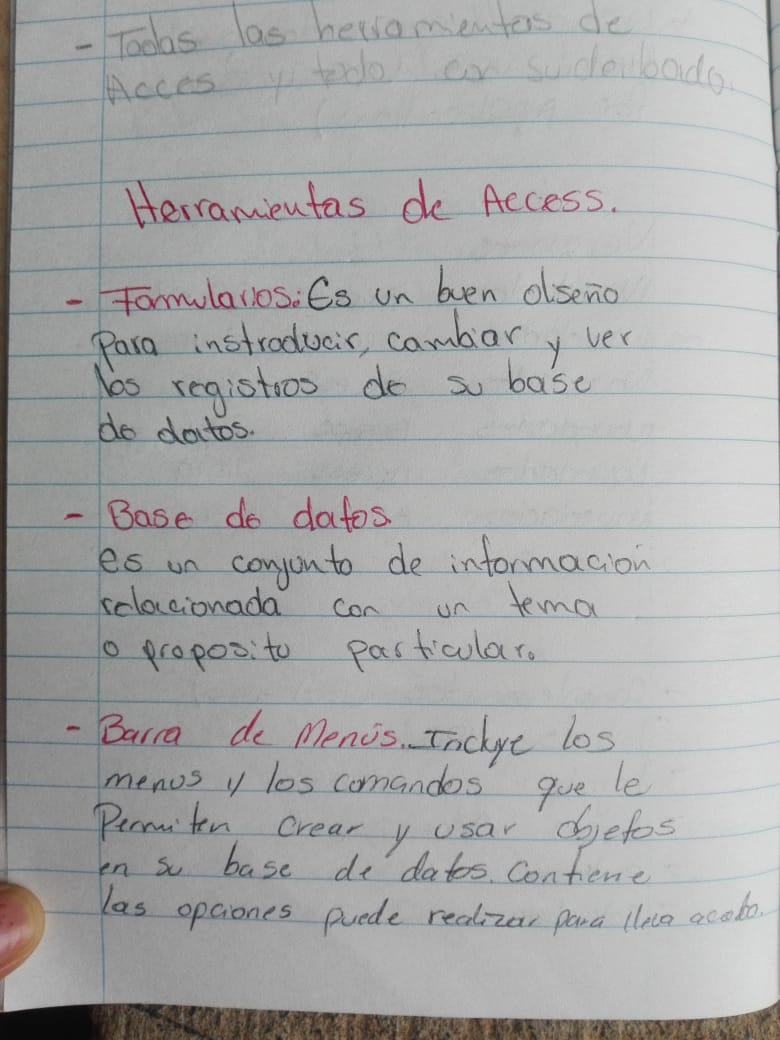 - Todas las herramientas de
Acces y todo con su
Herramientas de Access.
- Formularios: Es un buen diseño
Para instroducir, cambiar y ver
los registros de su base
de datos.
- Base de datos.
es un conjunto de informacion
relacionada con un tema
o proposito particular.
- Barra de Menús. Incluye los
menus y los comandos que le
Permiten crear y usar objetos
en su base de datos. Contiene
las opciones puede realizar para lleva acabo.